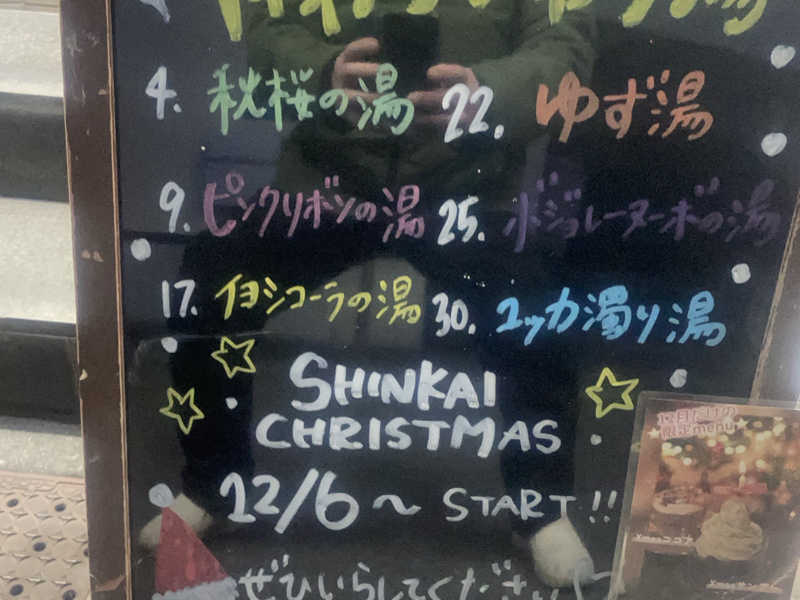 4. 秋桜の湯
22. ゆず湯
9. ピンクリボンの湯
25. ボジョレーヌーボの湯
17. イヨシコーラの湯
30. ユッカ濁り湯
SHINKAI
CHRISTMAS
12/6～ START!!
ぜひいらしてください
12月だけの
限定menu
Xmasココア